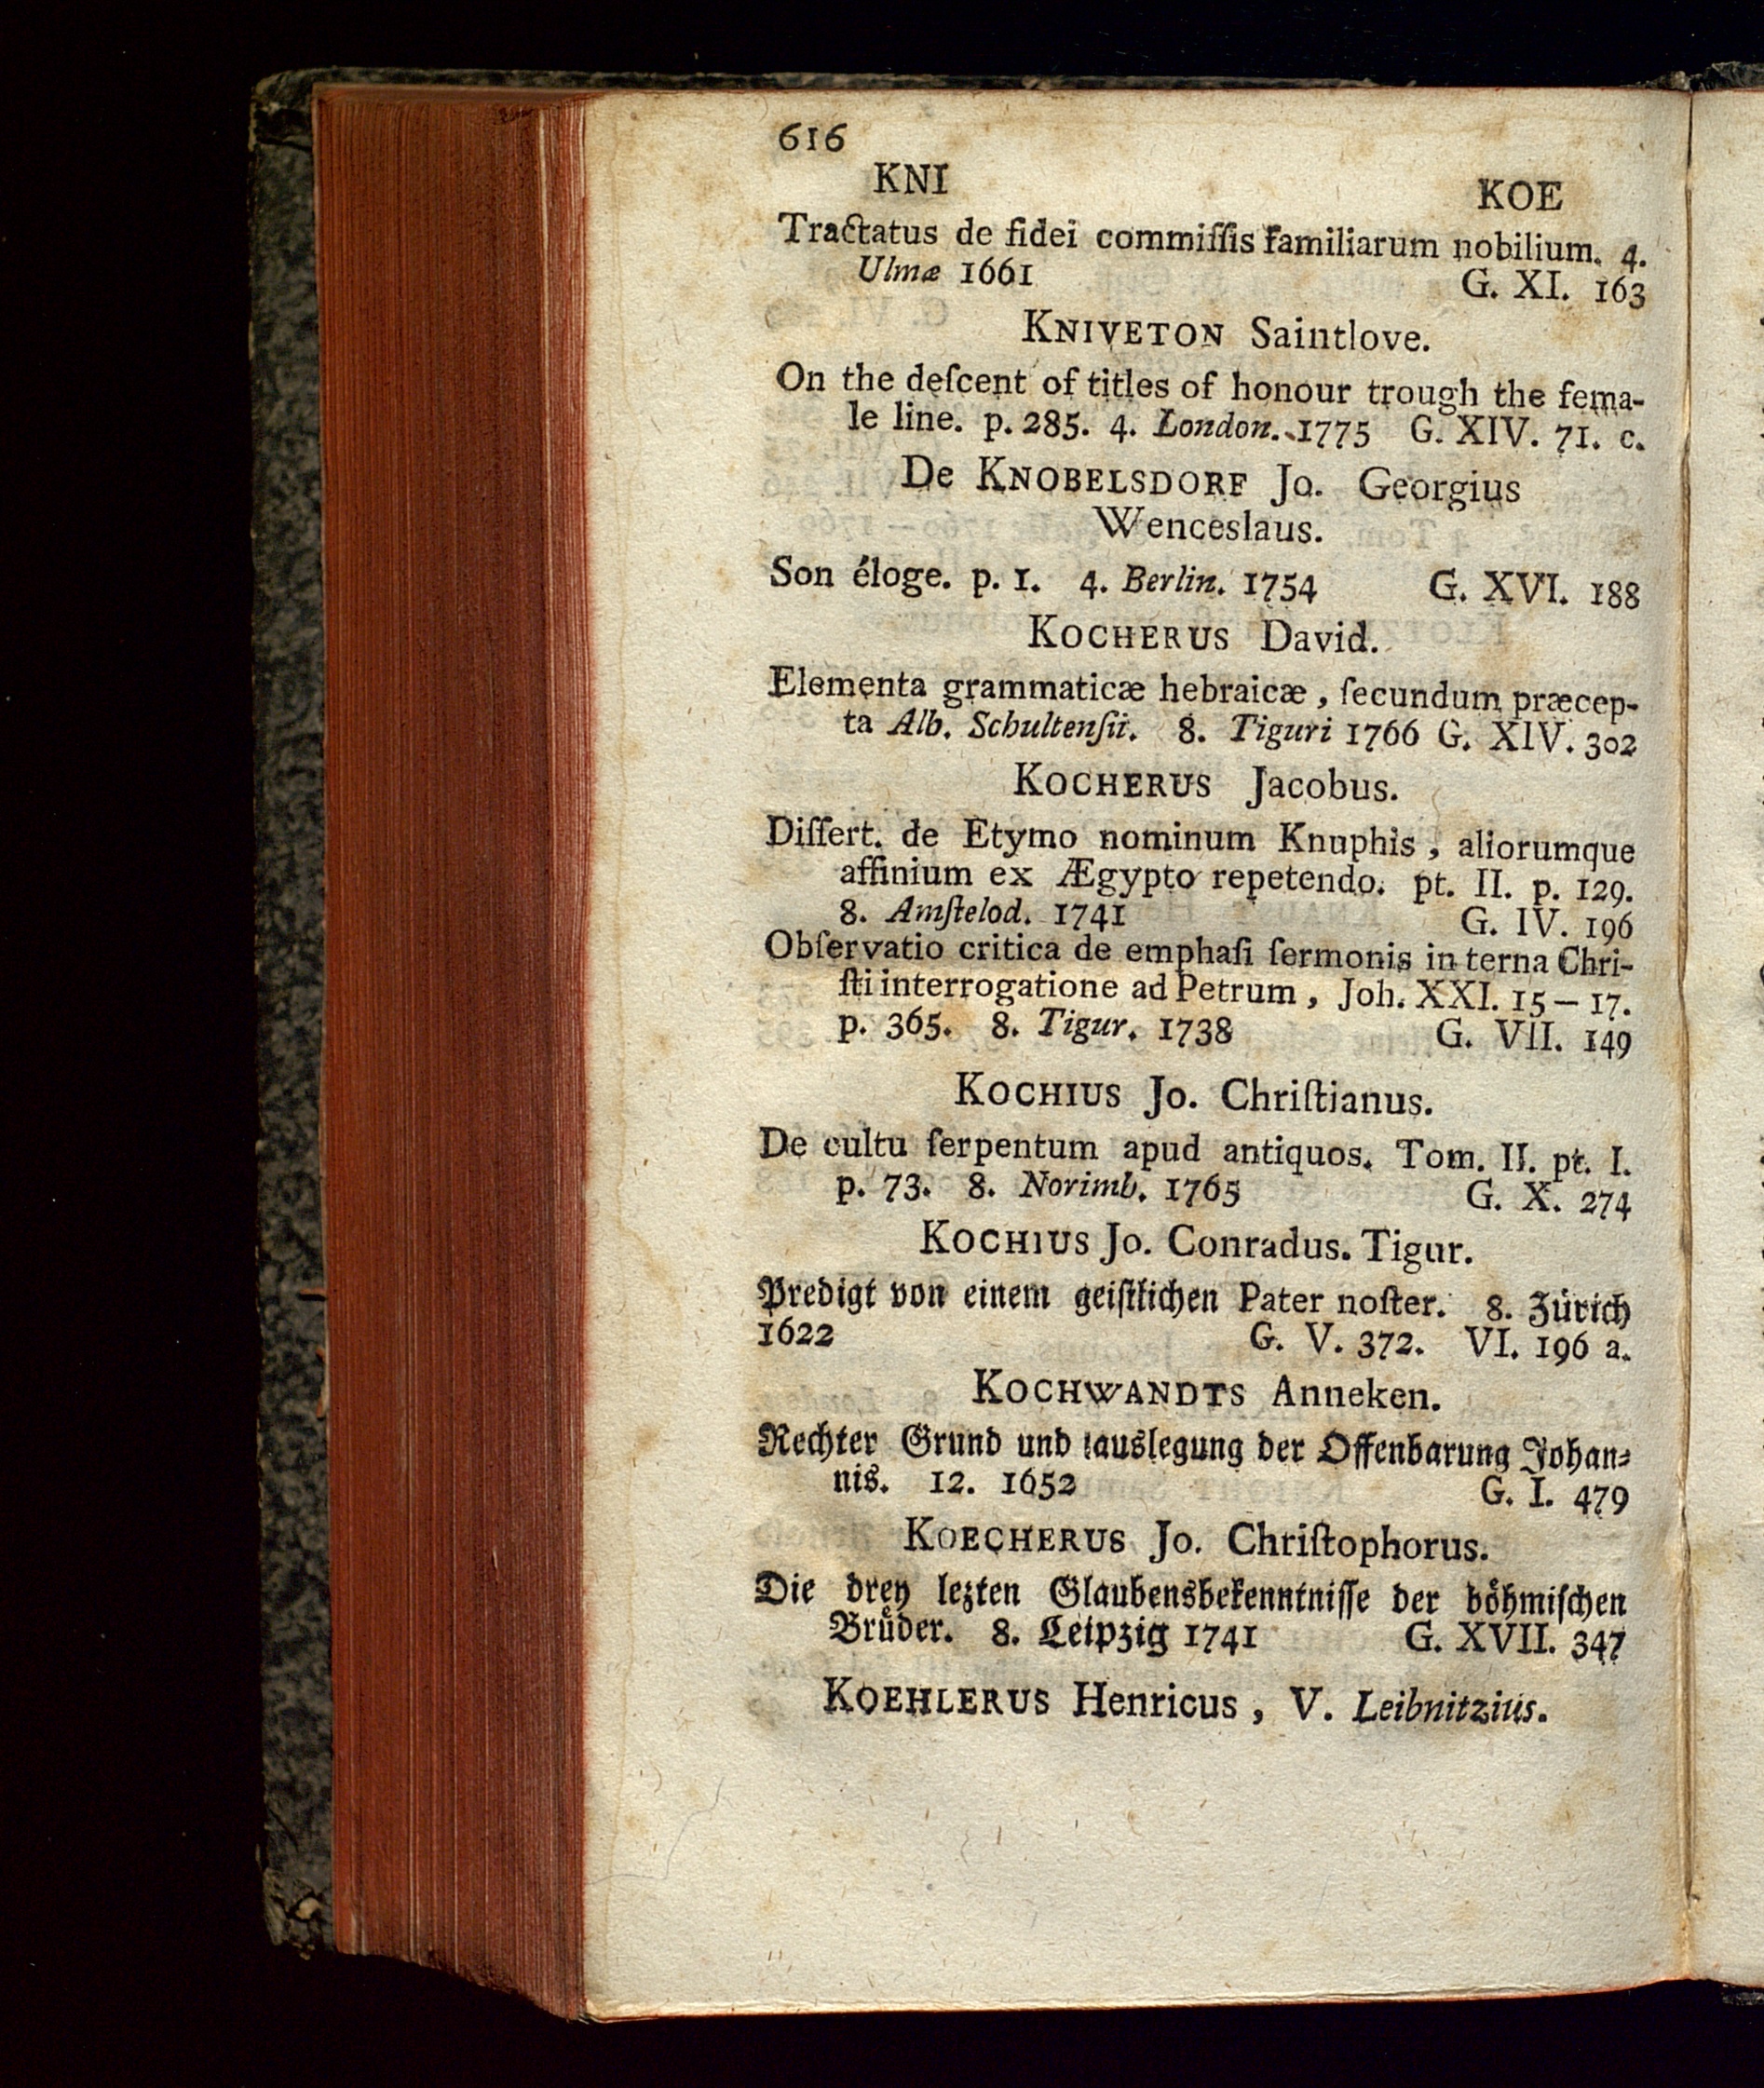 616
KNI KOE
Tractatus de fidei commiſſis familiarum nobilium. 4.
Ulmæ 1661 G. XI. 163
KNIVETON Saintlove.
On the deſcent of titles of honour trough the fema-
le line. p. 285. 4. London. 1775 G. XIV. 71. c.
De KNOBELSDORF Jo. Georgius
Wenceslaus.
Son éloge. p. 1. 4. Berlin. 1754 G. XVI. 188
KOCHERUS David.
Elementa grammaticæ hebraicæ, ſecundum præcep-
ta Alb. Schultenſii. 8. Tiguri 1766 G. XIV. 302
KOCHERUS Jacobus.
Diſſert. de Etymo nominum Knuphis, aliorumque
affinium ex Ægypto repetendo. pt. II. p. 129.
8. Amſtelod. 1741 G. IV. 196
Obſervatio critica de emphaſi ſermonis in terna Chri-
ſti interrogatione ad Petrum, Joh. XXI. 15 — 17.
p. 365. 8. Tigur. 1738 G. VII. 149
KOCHIUS Jo. Chriſtianus.
De cultu ſerpentum apud antiquos. Tom. II. pt. I.
p. 73. 8. Norimb. 1765 G. X. 274
KOCHIUS Jo. Conradus. Tigur.
Predigt von einem geiſtlichen Pater noſter. 8. Zürich
1622 G. V. 372. VI. 196 a.
KOCHWANDTS Anneken.
Rechter Grund und auslegung der Offenbarung Johan-
nis. 12. 1652 G. I. 479
KOECHERUS Jo. Chriſtophorus.
Die drey lezten Glaubensbekenntniſſe der böhmiſchen
Brüder. 8. Leipzig 1741 G. XVII. 347
KOEHLERUS Henricus, V. Leibnitzius.